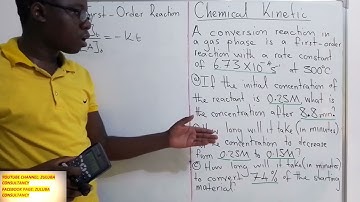 First-Order Reaction
= -Kt
Chemical Kinetic
A conversion reaction in
a gas phase is a first-order
reaction with a rate constant
of 6.73×10⁻⁴ s at 500°C
If the initial concentration of
the reactant is 0.25M, what is
the concentration after 8.8min?
long will it take (in minutes)
concentration to decrease
from 0.25M to 0.15M?
c How long will it take (in minutes)
to convert 74% of the starting
material?
YOUTUBE CHANNEL: ZULUBA
CONSULTANCY
FACEBOOK PAGE: ZULUBA
CONSULTANCY